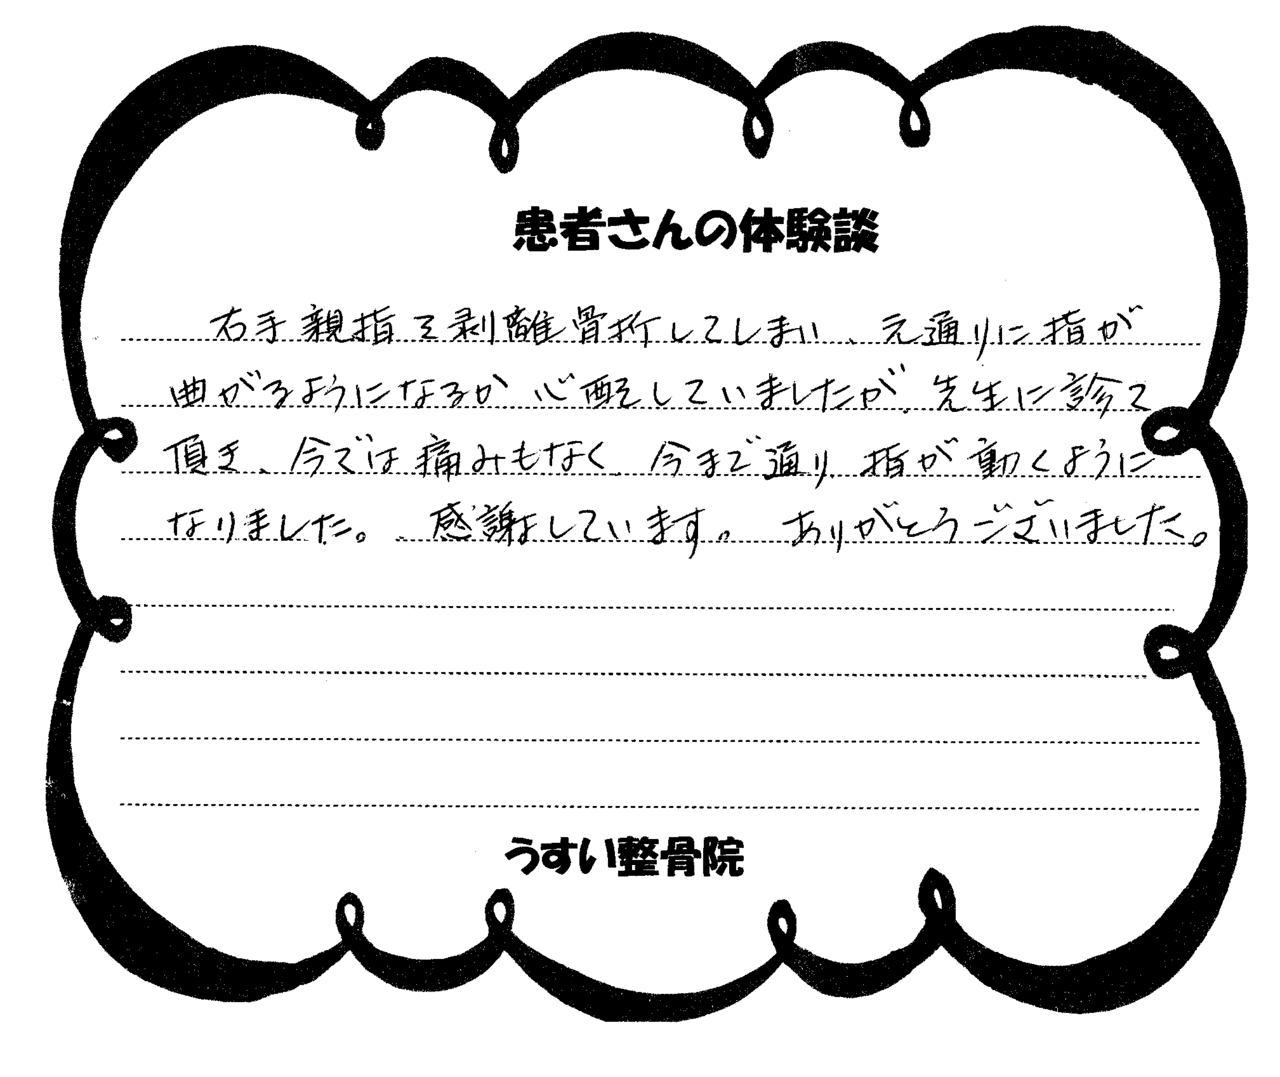 患者さんの体験談
右手親指を剥離骨折してしまい、元通りに指が
曲がるようになるか 心配していましたが、先生に診て
頂き、今では痛みもなく、今まで通り、指が動くように
なりました。感謝しています。ありがとうございました。
うすい整骨院